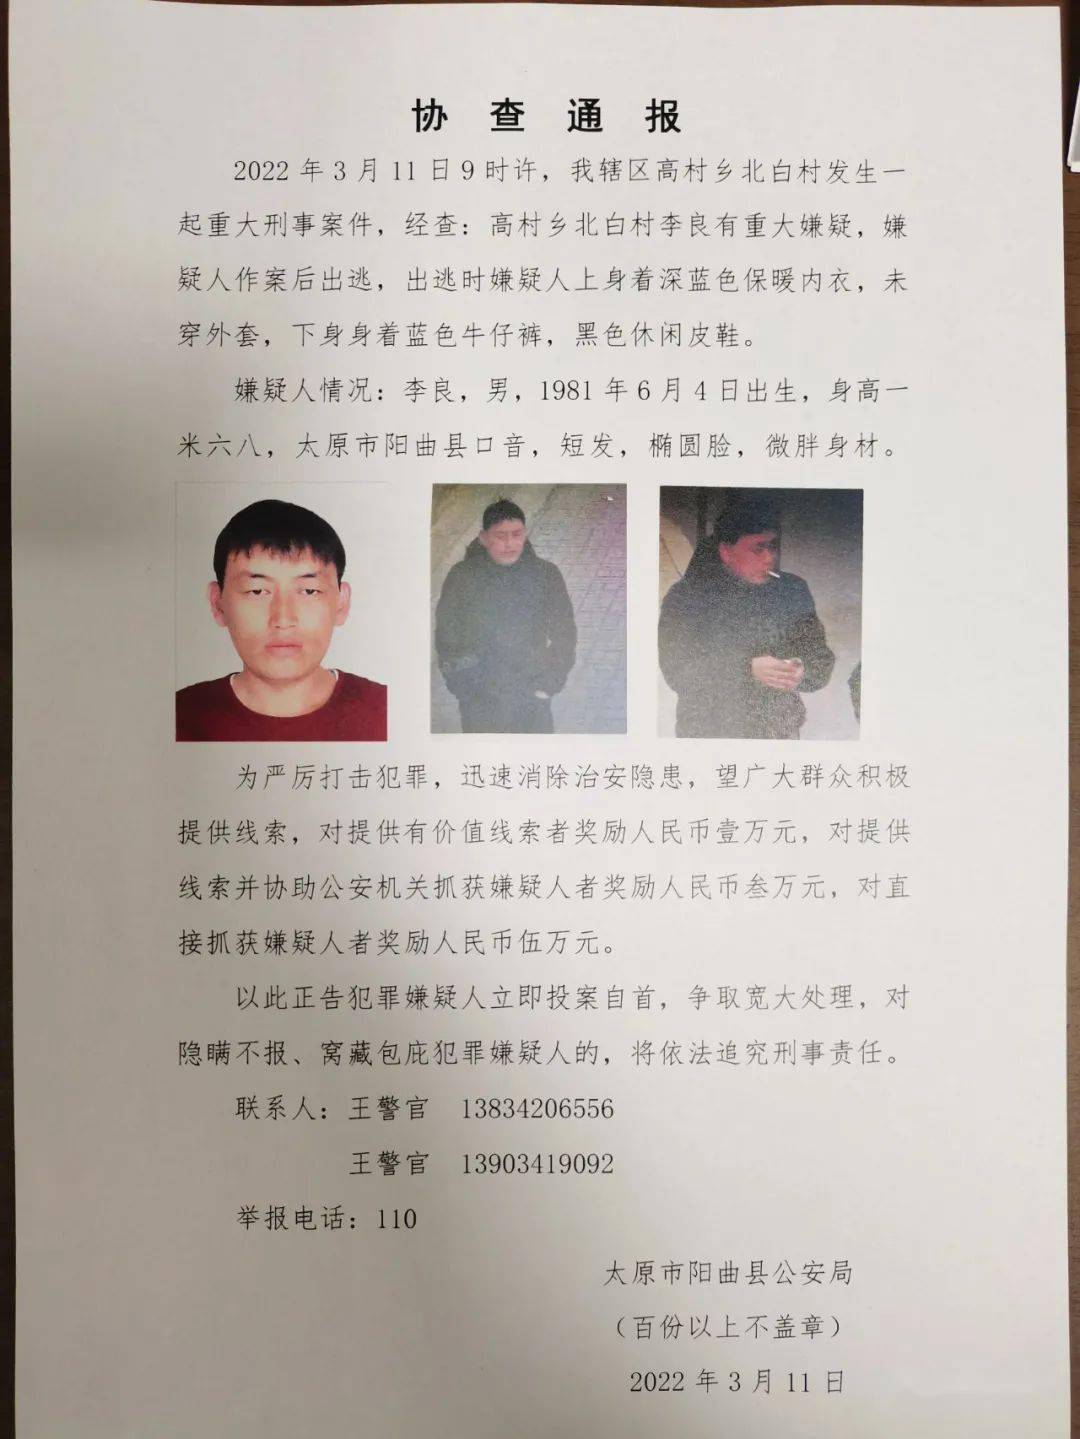 协查通报
2022年3月11日9时许，我辖区高村乡北白村发生一
起重大刑事案件，经查：高村乡北白村李良有重大嫌疑，嫌
疑人作案后出逃，出逃时嫌疑人上身着深蓝色保暖内衣，未
穿外套，下身身着蓝色牛仔裤，黑色休闲皮鞋。
嫌疑人情况：李良，男，1981年6月4日出生，身高一
米六八，太原市阳曲县口音，短发，椭圆脸，微胖身材。
为严厉打击犯罪，迅速消除治安隐患，望广大群众积极
提供线索，对提供有价值线索者奖励人民币壹万元，对提供
线索并协助公安机关抓获嫌疑人者奖励人民币叁万元，对直
接抓获嫌疑人者奖励人民币伍万元。
以此正告犯罪嫌疑人立即投案自首，争取宽大处理，对
隐瞒不报、窝藏包庇犯罪嫌疑人的，将依法追究刑事责任。
联系人：王警官 13834206556
王警官 13903419092
举报电话：110
太原市阳曲县公安局
（百份以上不盖章）
2022年3月11日